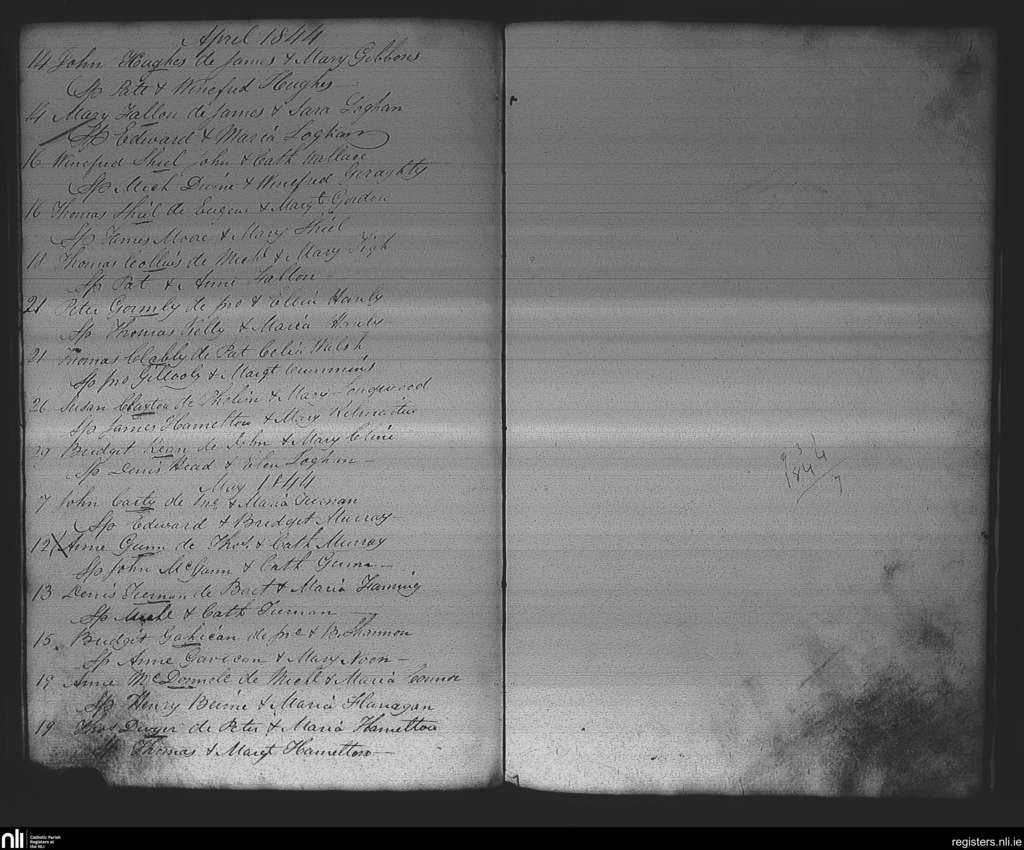 April 1844
14 John Hughes de James & Mary Gibbons
Sp Patt & Winefred Hughes
14 Mary Fallon de James & Sara Loghan
Sp Edward & Maria Loghan
16 Winefred Shiel John & Cath Wallace
Sp Mich Divine & Winefred Geraghty
16 Thomas Shiel de Eugene & Margt Gordon
Sp James Moore & Mary Shiel
18 Thomas Collins de Michl & Mary Tigh
Sp Pat & Anne Fallon
21 Peter Gormly de Jno & Ellen Hanly
Sp Thomas Kelly & Maria Hanly
21 Thomas Clabby de Pat Celia Walsh
Sp Jno Gillooly & Margt Cummins
26 Susan Claxton de & Mary Longwood
Sp James Hamelton & Mary
29 Bridget Kean de John & Mary Cline
Sp Denis Head & Elen Loghan
May 1844
7 John Carty de Jno & Maria Tiernan
Sp Edward & Bridget Murray
12 Anne Gunn de Thos & Cath Murray
Sp John McGann & Cath Gunn
13 Denis Tiernan de Bart & Maria Fanning
Sp Michl & Cath Tiernan
15 Bridget Gahican de Jno & B. Shannon
Sp Anne Gavican & Mary Noon
19 Anne McDonnell de Michl & Maria Connor
Sp Henry Beirne & Maria Flanagan
19 Thos Dwyer de Peter & Maria Hamelton
Sp Thomas & Margt Hamelton
1844
7
nli
Catholic Parish
Registers at
the NLI
registers.nli.ie